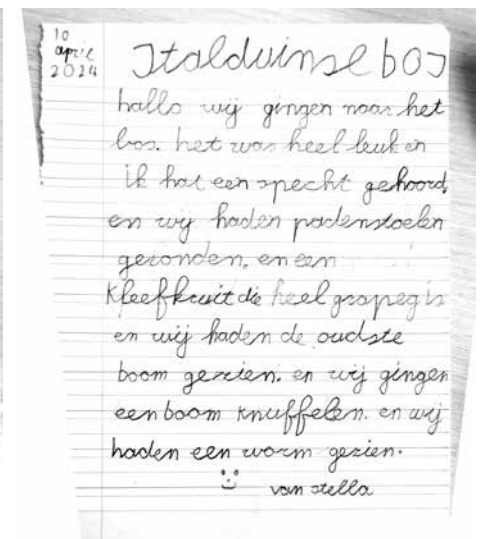 10
april
2024
Stalduinse bos
hallo wij gingen naar het
bos. het was heel leuk en
ik hat een specht gehoord,
en wij haden padenstoelen
gevonden, en een
kleefkruit die heel grapeg is
en wij haden de oudste
boom gezien. en wij gingen
een boom knuffelen. en wij
haden een worm gezien.
van stella